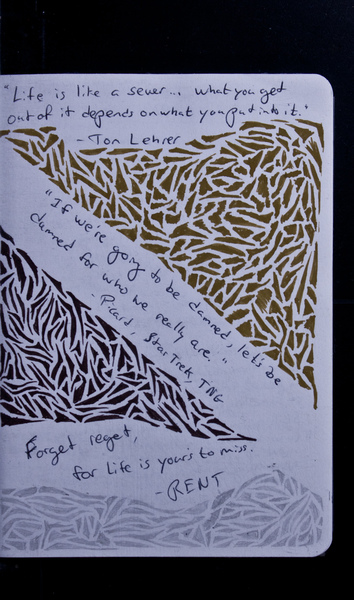 "Life is like a sewer... what you get
out of it depends on what you put into it."
- Tom Lehrer
"If we're going to be damned, let's be
damned for who we really are."
- Picard, Star Trek, TNG
Forget reget,
for Life is yours to miss.
- RENT